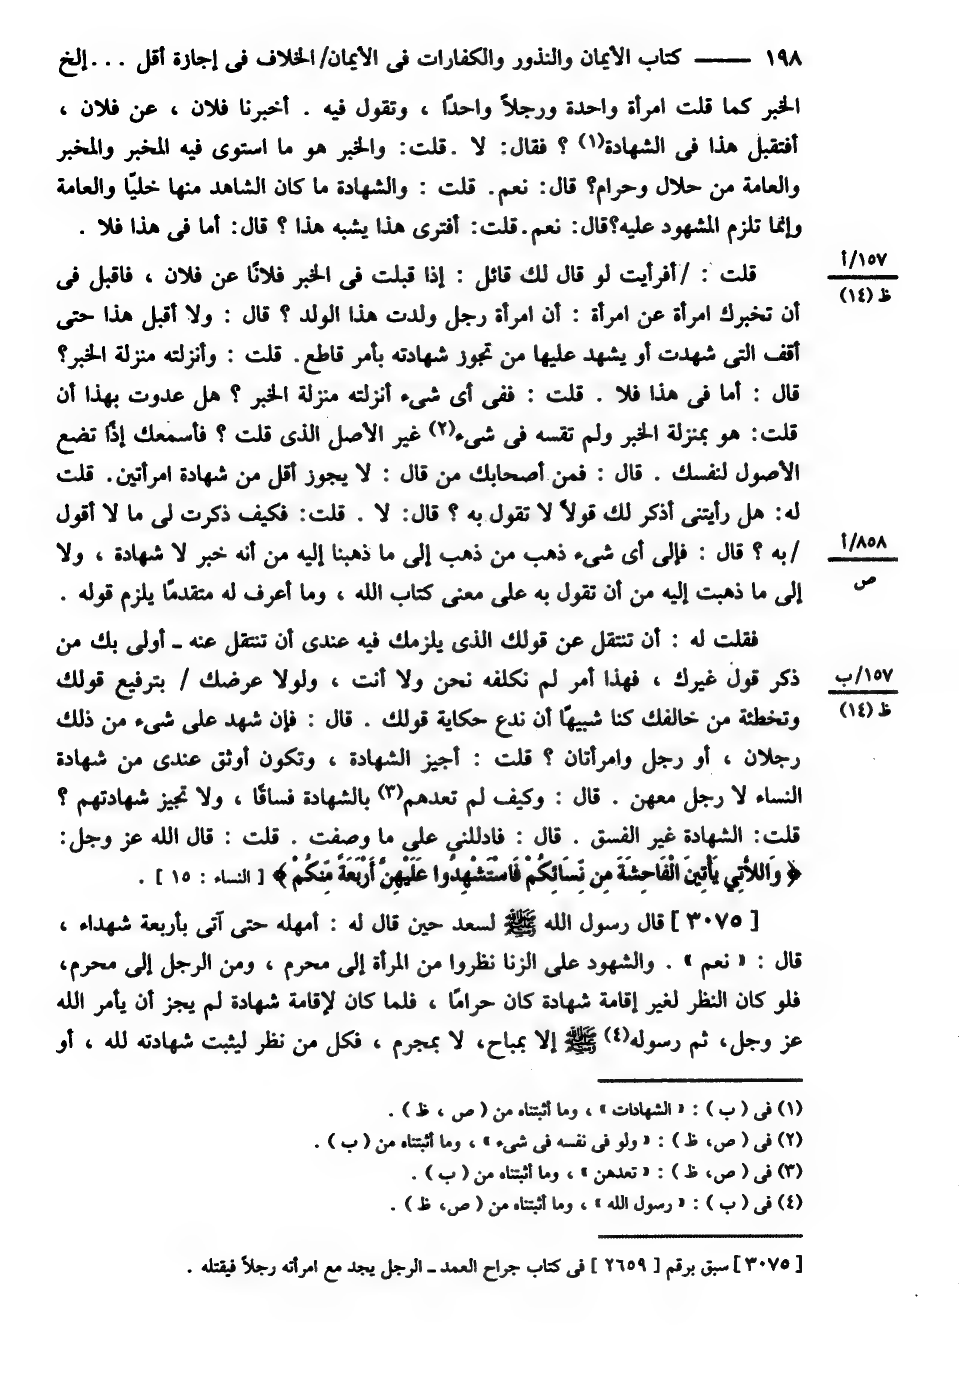 ١٩٨ ــــــ كتاب الأيمان والنذور والكفارات فى الأيمان/ الخلاف فى إجازة أقل . . . إلخ
الخبر كما قلت امرأة واحدة ورجلاً واحدًا ، وتقول فيه . أخبرنا فلان ، عن فلان ،
أفتقبل هذا فى الشهادة(١) ؟ فقال: لا . قلت: والخبر هو ما استوى فيه المخبر والمخبر
والعامة من حلال وحرام؟ قال: نعم. قلت : والشهادة ما كان الشاهد منها خليًا والعامة
وإنما تلزم المشهود عليه؟قال: نعم.قلت: أفترى هذا يشبه هذا ؟ قال: أما فى هذا فلا .
قلت : / أفرأيت لو قال لك قائل : إذا قبلت فى الخبر فلانًا عن فلان ، فاقبل فى
١٥٧/أ
ظ (١٤)
أن تخبرك امرأة عن امرأة : أن امرأة رجل ولدت هذا الولد ؟ قال : ولا أقبل هذا حتى
أقف التى شهدت أو يشهد عليها من تجوز شهادته بأمر قاطع. قلت : وأنزلته منزلة الخبر؟
قال : أما فى هذا فلا . قلت : ففى أى شىء أنزلته منزلة الخبر ؟ هل عدوت بهذا أن
قلت: هو بمنزلة الخبر ولم تقسه فى شىء(٢) غير الأصل الذى قلت ؟ فأسمعك إذًا تضع
الأصول لنفسك . قال : فمن أصحابك من قال : لا يجوز أقل من شهادة امرأتين. قلت
له: هل رأيتنى أذكر لك قولاً لا تقول به ؟ قال: لا . قلت: فكيف ذكرت لى ما لا أقول
/ به ؟ قال : فإلى أى شىء ذهب من ذهب إلى ما ذهبنا إليه من أنه خبر لا شهادة ، ولا
٨٥٨/أ
ص
إلى ما ذهبت إليه من أن تقول به على معنى كتاب الله ، وما أعرف له متقدمًا يلزم قوله .
فقلت له : أن تنتقل عن قولك الذى يلزمك فيه عندى أن تنتقل عنه ـ أولى بك من
ذكر قول غيرك ، فهذا أمر لم نكلفه نحن ولا أنت ، ولولا عرضك / بترفيع قولك
١٥٧/ب
ظ (١٤)
وتخطئة من خالفك كنا شبيهًا أن ندع حكاية قولك . قال : فإن شهد على شىء من ذلك
رجلان ، أو رجل وامرأتان ؟ قلت : أجيز الشهادة ، وتكون أوثق عندى من شهادة
النساء لا رجل معهن . قال : وكيف لم تعدهم(٣) بالشهادة فساقًا ، ولا تجيز شهادتهم ؟
قلت: الشهادة غير الفسق . قال : فادللنى على ما وصفت . قلت : قال الله عز وجل:
﴿ وَاللاَّتِي يَأْتِينَ الْفَاحِشَةَ مِن نِّسَائِكُمْ فَاسْتَشْهِدُوا عَلَيْهِنَّ أَرْبَعَةً مِّنكُمْ ﴾ [ النساء : ١٥ ] .
[ ٣٠٧٥ ] قال رسول الله ﷺ لسعد حين قال له : أمهله حتى آتى بأربعة شهداء ،
قال : « نعم » . والشهود على الزنا نظروا من المرأة إلى محرم ، ومن الرجل إلى محرم،
فلو كان النظر لغير إقامة شهادة كان حرامًا ، فلما كان لإقامة شهادة لم يجز أن يأمر الله
عز وجل، ثم رسوله(٤) ﷺ إلا بمباح، لا بمجرم ، فكل من نظر ليثبت شهادته لله ، أو
(١) فى ( ب ) : « الشهادات » ، وما أثبتناه من ( ص ، ظ ) .
(٢) فى ( ص، ظ ) : « ولو فى نفسه فى شىء » ، وما أثبتناه من ( ب ) .
(٣) فى ( ص، ظ ) : « تعدهن » ، وما أثبتناه من ( ب ) .
(٤) فى ( ب ) : « رسول الله » ، وما أثبتناه من ( ص، ظ ) .
[ ٣٠٧٥ ] سبق برقم [ ٢٦٥٩ ] فى كتاب جراح العمد ـ الرجل يجد مع امرأته رجلاً فيقتله .